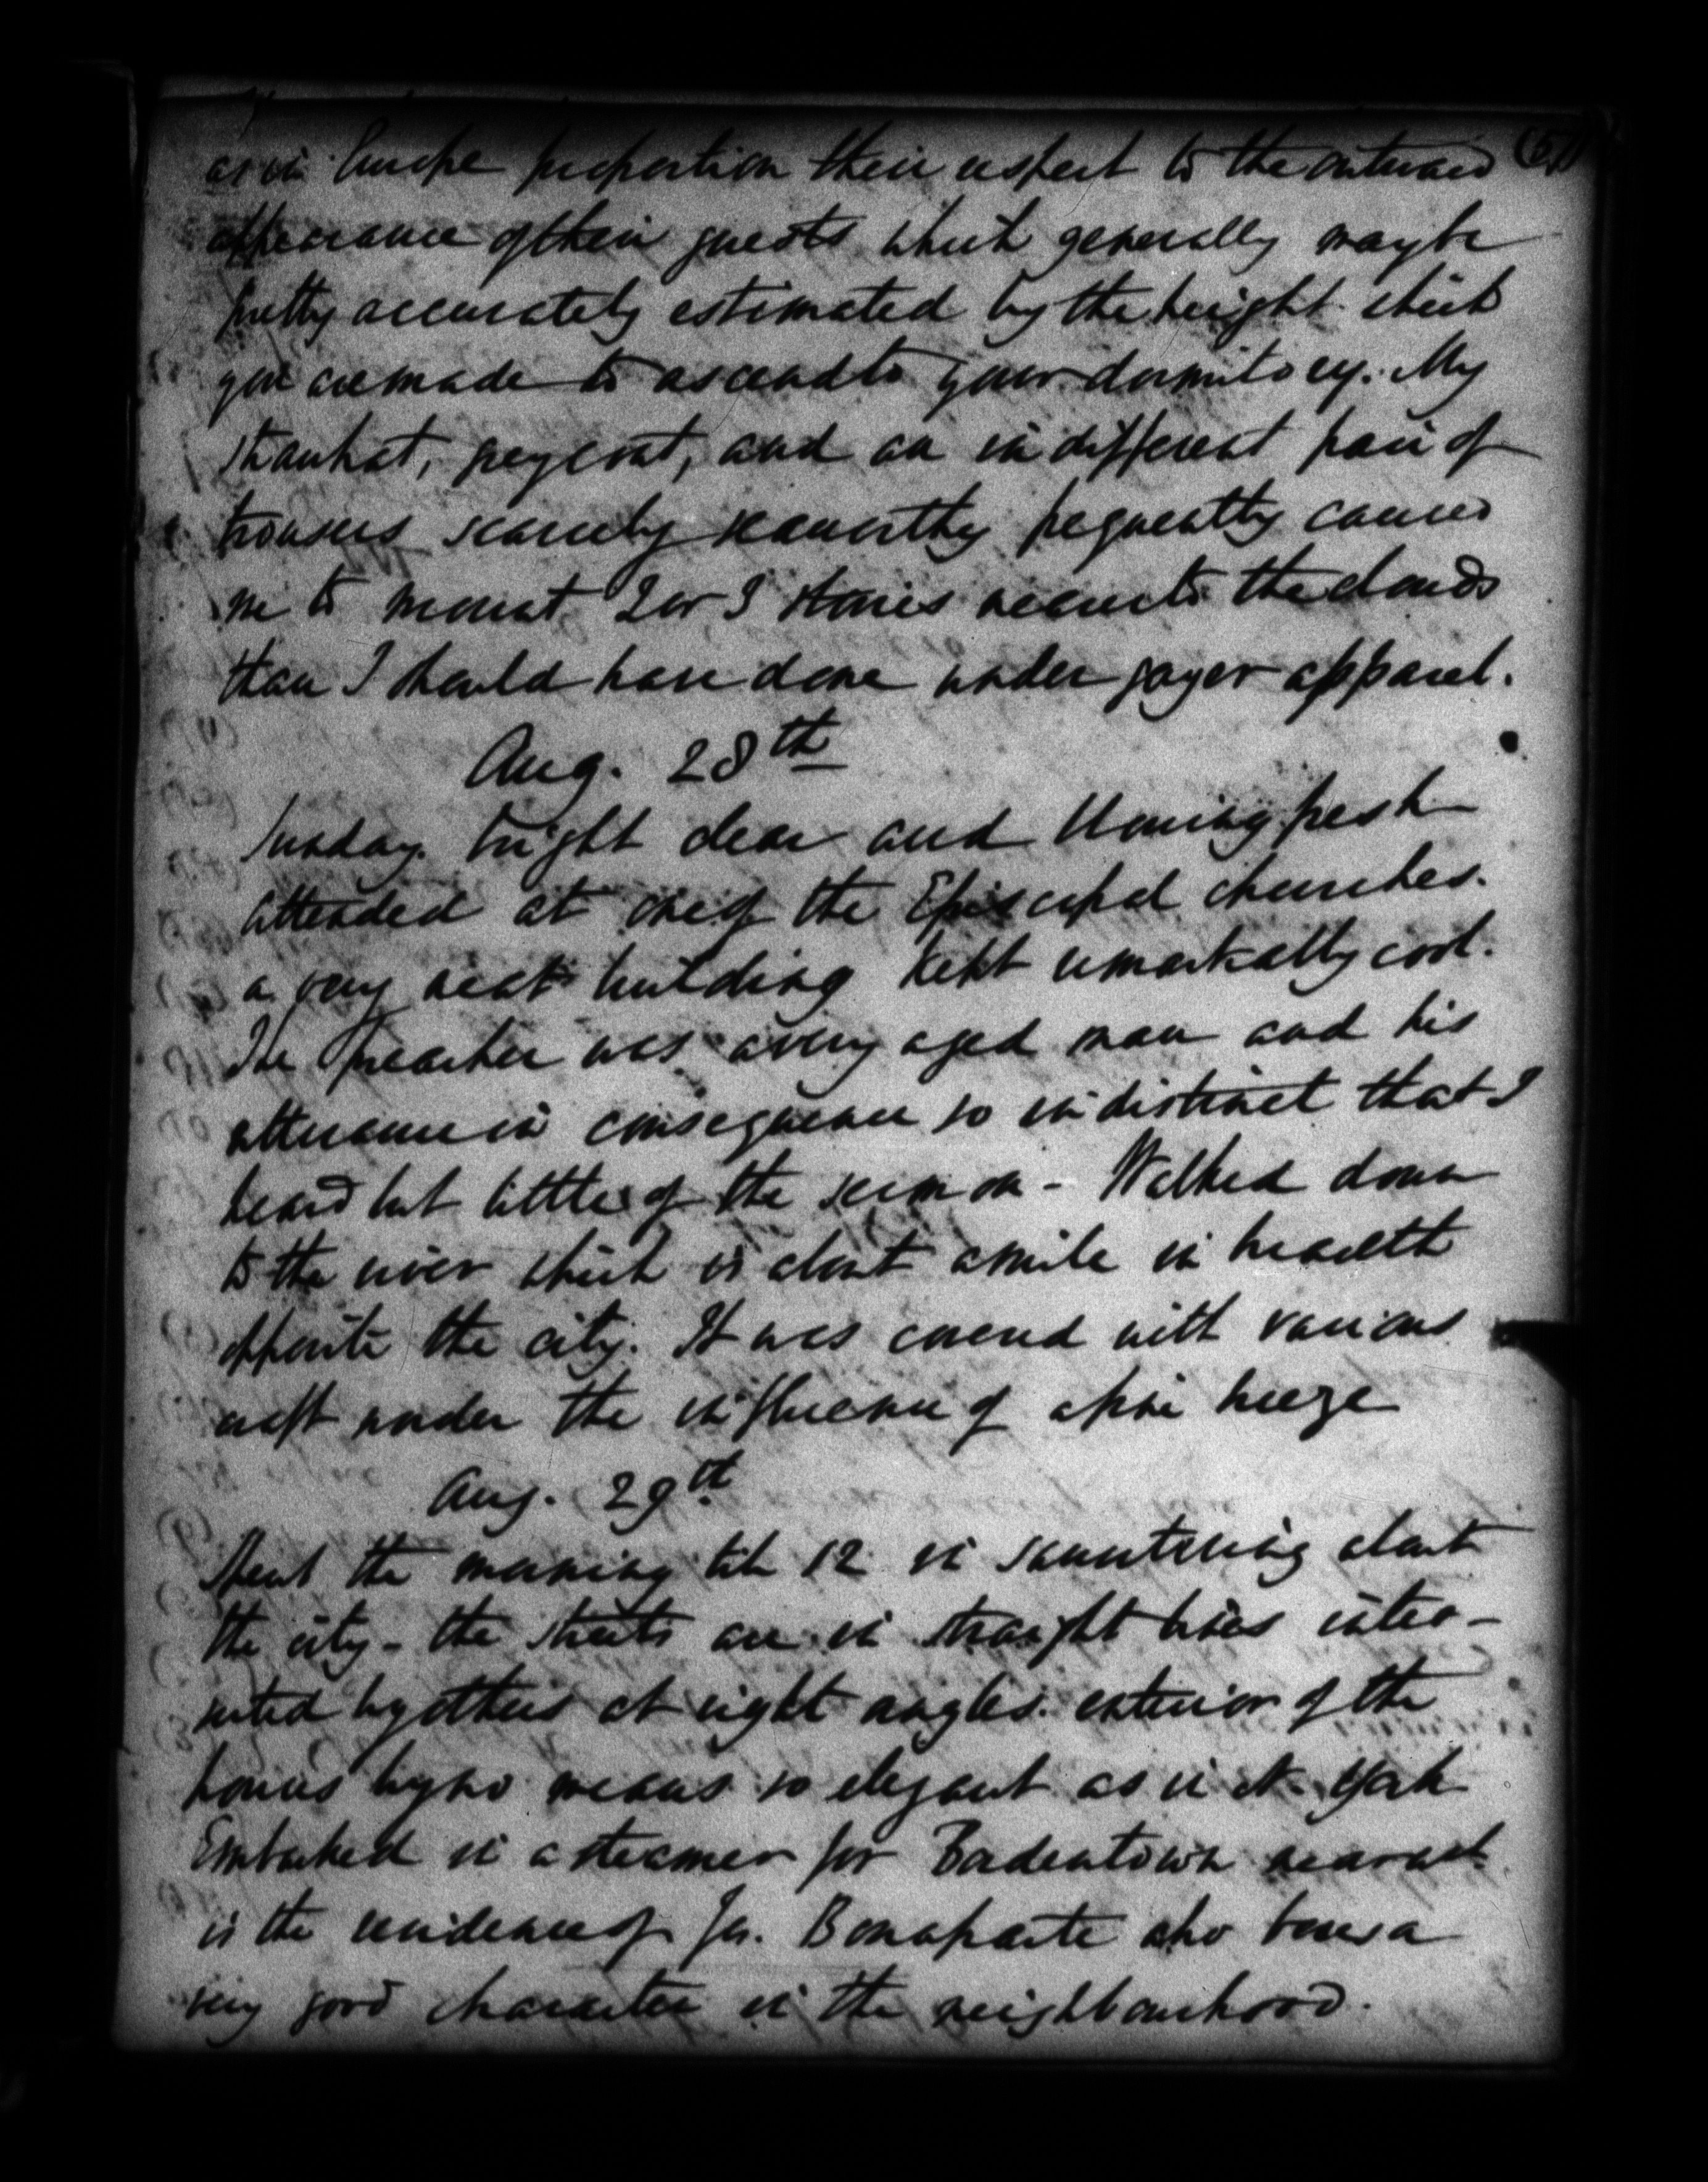 as in Europe proportion their respect to the outward (51)
appearance of their guests which generally may be
pretty accurately estimated by the height which
you are made to ascend to your dormitory. My
straw hat, grey coat, and an indifferent pair of
trousers scarcely seaworthy frequently caused
me to mount 2 or 3 stories nearer to the clouds
than I should have done under gayer apparel.
Aug. 28th
Sunday. bright clear and blowing fresh
attended at one of the Episcopal churches.
a very neat building kept remarkably cool.
The preacher was a very aged man and his
utterance in consequence so indistinct that I
heard but little of the sermon - Walked down
to the river which is about a mile in breadth
opposite the city. It was covered with various
craft under the influence of a fine breeze
Aug. 29th
Spent the morning till 12 in sauntering about
the city - the streets are in straight lines inter-
sected by others at right angles. exterior of the
houses by no means so elegant as in N. York
Embarked in a steamer for Bordentown near
is the residence of Jos. Bonaparte who bears a
very good character in the neighbourhood.